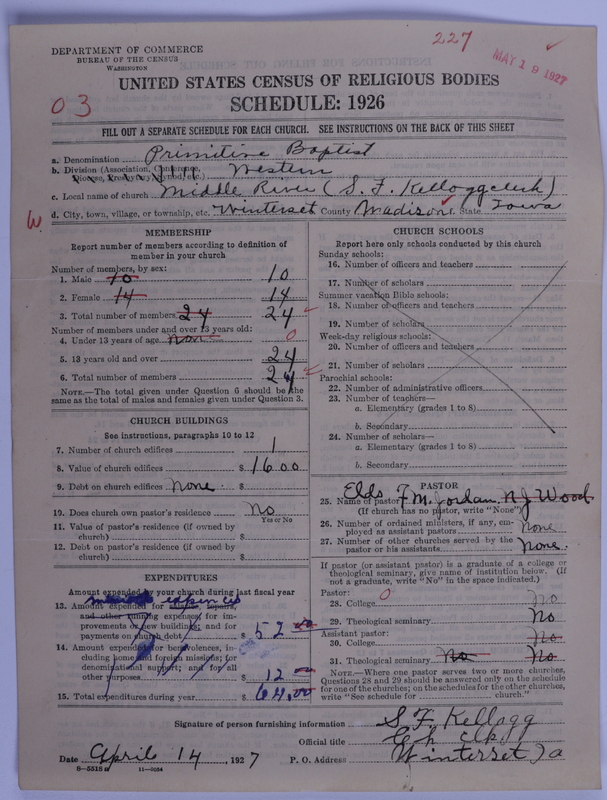 227
MAY 19 1927
DEPARTMENT OF COMMERCE
BUREAU OF THE CENSUS
WASHINGTON
UNITED STATES CENSUS OF RELIGIOUS BODIES
03
SCHEDULE: 1926
FILL OUT A SEPARATE SCHEDULE FOR EACH CHURCH. SEE INSTRUCTIONS ON THE BACK OF THIS SHEET
a. Denomination Primitive Baptist
b. Division (Association, Conference, Western
Diocese, Presbytery, Synod, etc.)
c. Local name of church Middle River (S. F. Kellogg clerk)
W. d. City, town, village, or township, etc. Winterset County Madison State Iowa
MEMBERSHIP
Report number of members according to definition of
member in your church
Number of members, by sex:
1. Male 10 10
2. Female 14 14
3. Total number of members 24 24
Number of members under and over 13 years old:
4. Under 13 years of age none 0
5. 13 years old and over 24
6. Total number of members 24
NOTE.—The total given under Question 6 should be the
same as the total of males and females given under Question 3.
CHURCH BUILDINGS
See instructions, paragraphs 10 to 12
7. Number of church edifices 1
8. Value of church edifices $ 1600
9. Debt on church edifices none $
10. Does church own pastor's residence? No
Yes or No
11. Value of pastor's residence (if owned by
church) $
12. Debt on pastor's residence (if owned by
church) $
EXPENDITURES
Amount expended by your church during last fiscal year
expences
13. Amount expended for salaries, repairs,
and other running expenses; for im-
provements or new buildings; and for
payments on church debt $ 52 00
14. Amount expended for benevolences, in-
cluding home and foreign missions; for
denominational support; and for all
other purposes $ 12 00
15. Total expenditures during year $ 64.00
CHURCH SCHOOLS
Report here only schools conducted by this church
Sunday schools:
16. Number of officers and teachers
17. Number of scholars
Summer vacation Bible schools:
18. Number of officers and teachers
19. Number of scholars
Week-day religious schools:
20. Number of officers and teachers
21. Number of scholars
Parochial schools:
22. Number of administrative officers
23. Number of teachers—
a. Elementary (grades 1 to 8)
b. Secondary
24. Number of scholars—
a. Elementary (grades 1 to 8)
b. Secondary
PASTOR
25. Name of pastor Elds. F. M. Jordan, N J Wood
(If church has no pastor, write "None")
26. Number of ordained ministers, if any, em-
ployed as assistant pastors none
27. Number of other churches served by the
pastor or his assistants none.
If pastor (or assistant pastor) is a graduate of a college or
theological seminary, give name of institution below. (If
not a graduate, write "No" in the space indicated.)
Pastor: 0
28. College no
29. Theological seminary No
Assistant pastor:
30. College No
31. Theological seminary No No
NOTE.—Where one pastor serves two or more churches,
Questions 28 and 29 should be answered only on the schedule
for one of the churches; on the schedules for the other churches,
write "See schedule for church."
Signature of person furnishing information S F. Kellogg
Official title Ch clk.
Date April 14, 1927 P. O. Address Winterset Ia
8—5518 11—9034